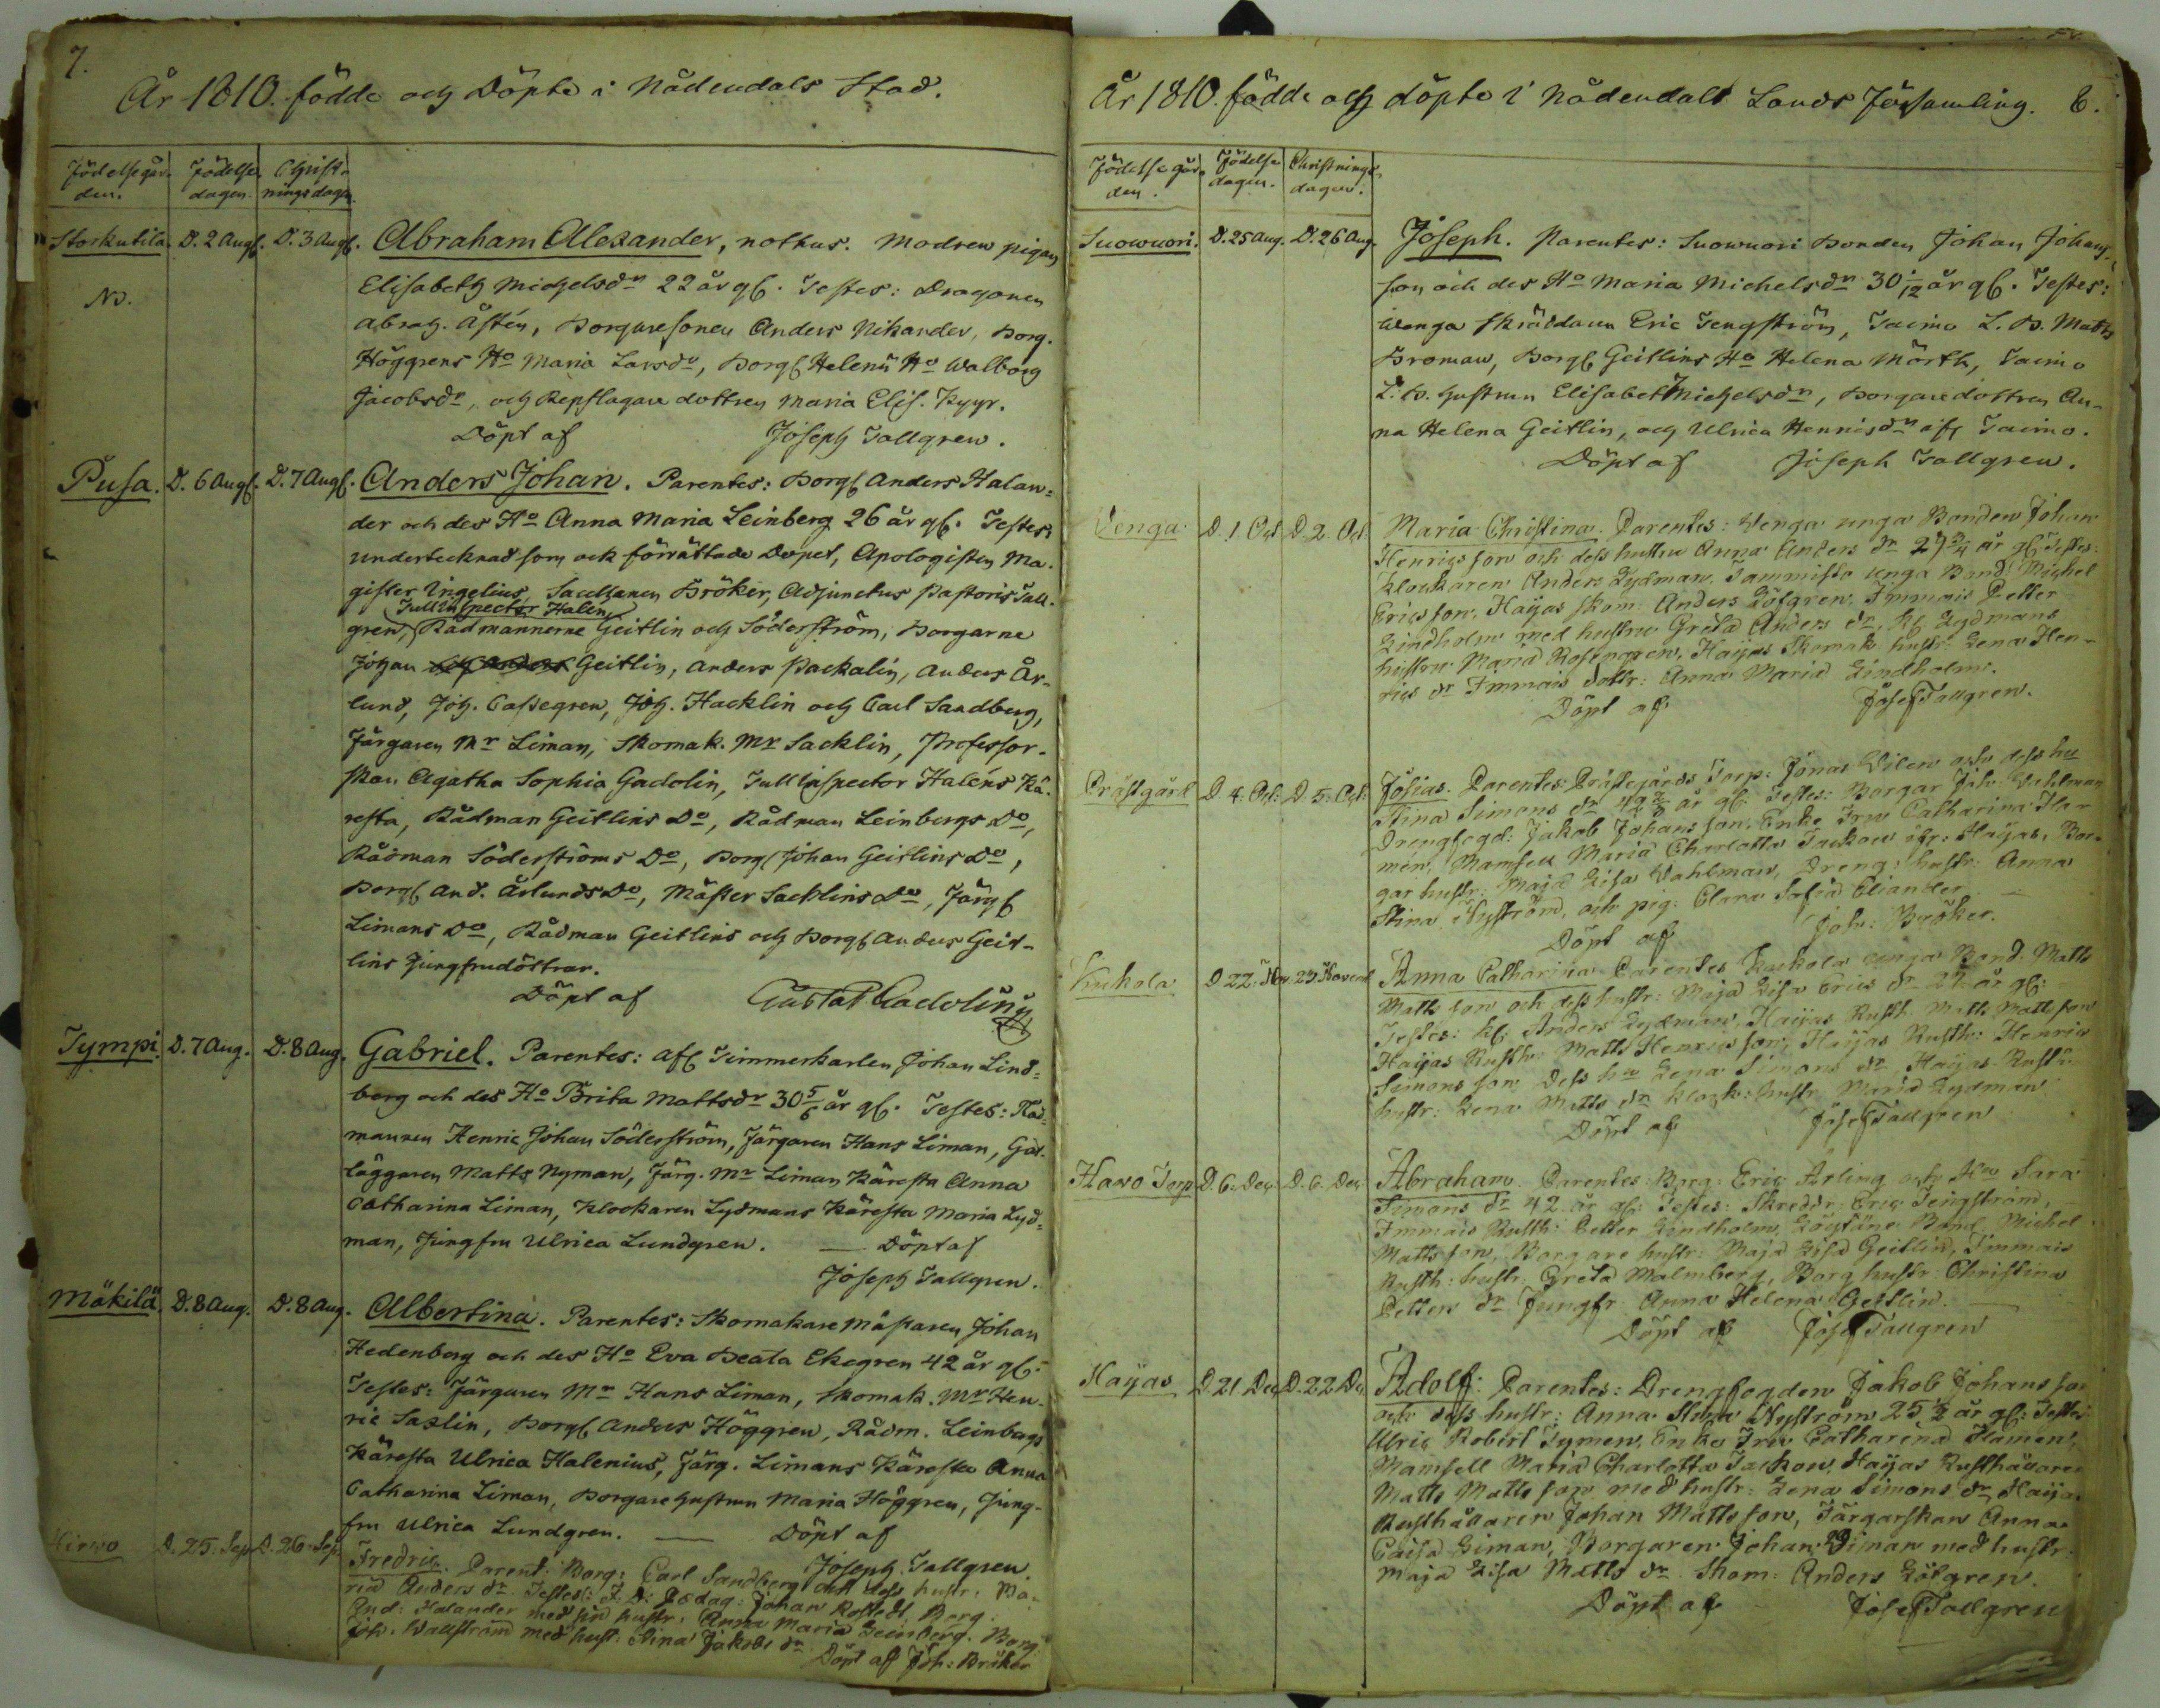 7.
År 1810. födde och Döpte i Nådendals Stad.
Födelsegår-
den.
Födelse
dagen.
Christ-
ningsdagen.
Storkutila. D. 2 Aug. D. 3 Aug. Abraham Alexander, nothus. Modren pigan
No.
Elisabeth Michelsdr 22 år gl. Testes: Dragonen
Abrah. Åstén, Borgaresonen Anders Nikander, Borg.
Höggrens Ho Maria Larsdr, Borg Helenii Ho Walborg
Jacobsdr, och Repslagare dottren Maria Elis. Kyyr.
Döpt af Joseph Tallgren.
Pusa. D. 6 Aug. D. 7 Aug. Anders Johan. Parentes: Borg Anders Halan-
der och des Ho Anna Maria Leinberg 26 år gl. Testes:
undertecknad som ock förrättade Dopet, Apologisten Ma-
gister Ingelius, Sacellanen Bröker, Adjunctus Pastoris Tall-
Tullinspector Halén
gren, Rådmannerne Geitlin och Söderström, Borgarne
Johan Geitlin, Anders Packalin, Anders År-
lund, Joh. Cassegren, Joh. Hacklin och Carl Sandberg,
Färgaren Mr Liman, Skomak. Mr Sacklin, Professor-
skan Agatha Sophia Gadolin, Tullinspector Haléns Kä-
resta, Rådman Geitlins Do, Rådman Leinbergs Do,
Rådman Söderströms Do, Borg Johan Geitlins Do,
Borg And. Årlunds Do, Mäster Sacklins Do, Färg
Limans Do, Rådman Geitlins och Borg Anders Geit-
lins Jungfrudöttrar.
Döpt af Gustaf Gadolin
Tympi. D. 7 Aug. D. 8 Aug. Gabriel. Parentes: Afl Timmerkarlen Johan Lind-
berg och des Ho Brita Mattsdr 30 5/6 år gl. Testes: Råd-
mannen Henric Johan Söderström, Färgaren Hans Liman, Gat-
läggaren Matts Nyman, Färg. Mr Liman Käresta Anna
Catharina Liman, Klockaren Lydmans Käresta Maria Lyd-
man, Jungfru Ulrica Lundgren. Döpt af
Joseph Tallgren.
Mäkilä. D. 8 Aug. D. 8 Aug. Albertina. Parentes: Skomakare Mästaren Johan
Hedenberg och des Ho Eva Beata Ekegren 42 år gl.
Testes: Färgaren Mr Hans Liman, Skomak. Mr Hen-
ric Saxlin, Borg Anders Höggren, Rådm. Leinbergs
Käresta Ulrica Halenius, Färg. Limans Käresta Anna
Catharina Liman, Borgare hustrun Maria Höggren, Jung-
fru Ulrica Lundgren. Döpt af
Joseph Tallgren.
D. 25. Sep D. 26 Sep Fredric. Parent: Borg: Carl Sandberg och dess hustr: Ma-
ria Anders dr. Testes: Pædag: Johan Rostedt, Borg:
And: Halander med sin hustr: Anna Maria Leinberg. Borg:
Joh: Wallström med hust: Stina Jakobs dr
Döpt af Joh: Bröker
År 1810. födde och döpte i Nådendals Lands Församling. 8.
Födelsegår-
den.
Födelse
dagen.
Christnings
dagen.
Suowuori. D. 25 Aug. D. 26 Aug. Joseph. Parentes: Suowuori Bonden Johan Johans-
son och des Ho Maria Michelsdr 30 1/12 år gl. Testes:
Wenga Skräddaren Eric Tengström, Taimo L. B. Matts
Broman, Borg Geitlins Ho Helena Mörtk, Taimo
L. B. hustrun Elisabeth Michelsdr, Borgaredottren An-
na Helena Geitlin, och Ulrica Hennisdr ifr Taimo.
Döpt af Joseph Tallgren.
Venga D. 1 Oct D. 2. Oct Maria Christina. Parentes: Wenga unga Bonden Johan
Henricsson och dess hustru Anna Anders dr 27 3/4 år gl: Testes:
Klockaren Anders Lydman, Tammisto unga Bond: Michel
Ericsson, Haijas Skom: Anders Löfgren, Immais Petter
Lindholm med hustru Greta Anders dr, Kl Lydmans
hustru Maria Rosengren, Haijas Skomak: hustr: Lena Hen-
rics dr Immais dottr: Anna Maria Lindholm.
Döpt af Josef Tallgren.
Prästgård D 4. Oct: D 5. Oct: Josias. Parentes: Prästegårds Torp: Jonas Wilen och dess hu
Stina Simons dr år gl: Testes: Borgar Joh: Wahlman
Drengfogd: Jakob Johansson, Enke Fru Catharina Fla-
min, Mamsell Maria Charlotta ifr: Haijas, Bor-
gar hustr: Maja Lisa Wahlman, Dreng: hustr: Anna
Stina Nyström, och pig: Clara Sofia Eliander
Döpt af Joh: Bröker.
Kukola D 22. Nov. 23 Novemb Anna Catharina. Parentes Kuckola unga Bond. Matts
Matts son och dess hustr: Maja Lisa Erics dr 27 år gl:
Testes: Kl Anders Lydman, Haijas Rusth. Matts Matts son
Haijas Rusth: Matts Henrics son, Haijas Rusth: Henric
Simons son Dess hu Lena Simons dr, Haijas Rusth:
hustr: Lena Matts dr klock: hustr. Maria Lydman
Döpt af Josef Tallgren
Haxo Torp D. 6. Dec: D. 6. Dec Abraham. Parentes Borg: Eric Arling och Hu Sara
Simons dr 42 år gl: Testes: Skreddr: Eric Tengström,
Immais Rusth: Petter Lindholm, Bond Michel
Mattsson, Borgare hustr: Maja Lisa Geitlin, Immais
Rusth: hustr: Greta Malmberg, Borg hustr Christina
Petters dr Jungfr Anna Helena Geitlin.
Döpt af Josef Tallgren
Haijas D 21 Dec D. 22 Dec Adolf: Parentes: Drengfogden Jakob Johansson
och dess hustr: Anna Stina Nyström 25 1/2 år gl: Testes
Ulric Robert Tymen, Enke Fru Catharina Flamin,
Mamsell Maria Charlotta Haijas Rusthållaren
Matts Matts son med hustr: Lena Simons dr Haijas
Rusthållaren Johan Mattsson, Färgarskan Anna
Caisa Liman, Borgaren Johan Liman med hustr:
Maja Lisa Matts dr Skom: Anders Löfgren.
Döpt af Josef Tallgren